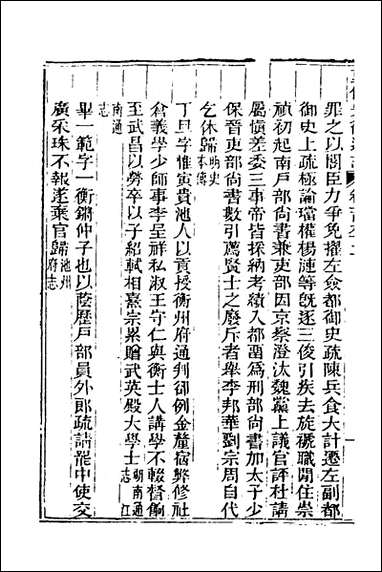 罪之以閣臣力爭免擢左僉都御史疏陳兵食大計遷左副都
御史上疏極論璫權楊漣等旣逐三俊引疾去旋褫職閒住崇
禎初起南戸部尚書兼吏部因京察澄汰魏黨上議官評杜請
屬愼差委三事帝皆採納考績入都畱爲刑部尚書加太子少
保晉吏部尚書數引薦賢士之廢斥者舉李邦華劉宗周自代
乞休歸明史本傳
丁旦字惟寅貴池人以貢授衡州府通判卻例金釐宿弊修社
倉義學少師事李呈祥私淑王守仁與衡士人講學不輟督餉
至武昌以勞卒以子紹軾相熹宗累贈武英殿大學士湖南通志江
南通志
畢一範字一衡鏘仲子也以蔭歷戸部員外郎疏請罷中使交
廣采珠不報遂棄官歸池州府志